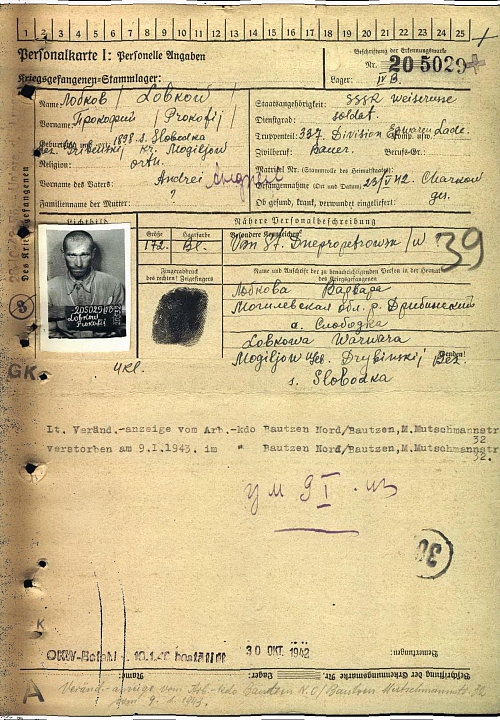 1 2 3 4 5 6 7 8 9 10 11 12 13 14 15 16 17 18 19 20 21 22 23 24 25
Personalkarte I: Personelle Angaben
Beschriftung der Erkennungsmarke
Nr. 205029
Kriegsgefangenen-Stammlager:
Lager: IV B.
Des Kriegsgefangenen
Name: Лобков / Lobkow /
Vorname: Прокофий / Prokofij /
1898. s. Slobodka
Kr. Mogiljow
Religion: orth.
Vorname des Vaters: Andrei Андрей
Familienname der Mutter: ?
Staatsangehörigkeit: SSSR Weisrusse
Dienstgrad: soldat
Truppenteil: 337 Division
Zivilberuf: Bauer. Berufs-Gr.:
Matrikel Nr. (Stammrolle des Heimatstaates):
Gefangennahme (Ort und Datum) 23/V 42. Charkow
Ob gesund, krank, verwundet eingeliefert: ges.
Lichtbild
205029
Lobkow
Prokofij
Nähere Personalbeschreibung
Größe Haarfarbe Besondere Kennzeichen:
172. Bl. Von St. Dnepropetrowsk
39
Fingerabdruck
des rechten Zeigefingers
Name und Anschrift der zu benachrichtigenden Person in der Heimat
des Kriegsgefangenen
Лобкова Варвара
Могилевская обл. р. Дрибинский
Слободка
Lobkowa Warwara
Modiljow Geb. Drybinskij Bez.
s. Slobodka
GK
Lt. Veränd.-anzeige vom Arb.-kdo Bautzen Nord/Bautzen,M.Mutschmannstr
32
verstorben am 9.I.1943. im " Bautzen Nord/Bautzen,M.Mutschmannstr
32.
ум 9 I
30
K
30 OKT. 1942
Bemerkungen:
Name:
Lager:
Beschriftung der Erkennungsmarke Nr.
A
Veränd.-anzeige vom Arb.-kdo Bautzen N.O/Bautzen Mutschmannstr. 32